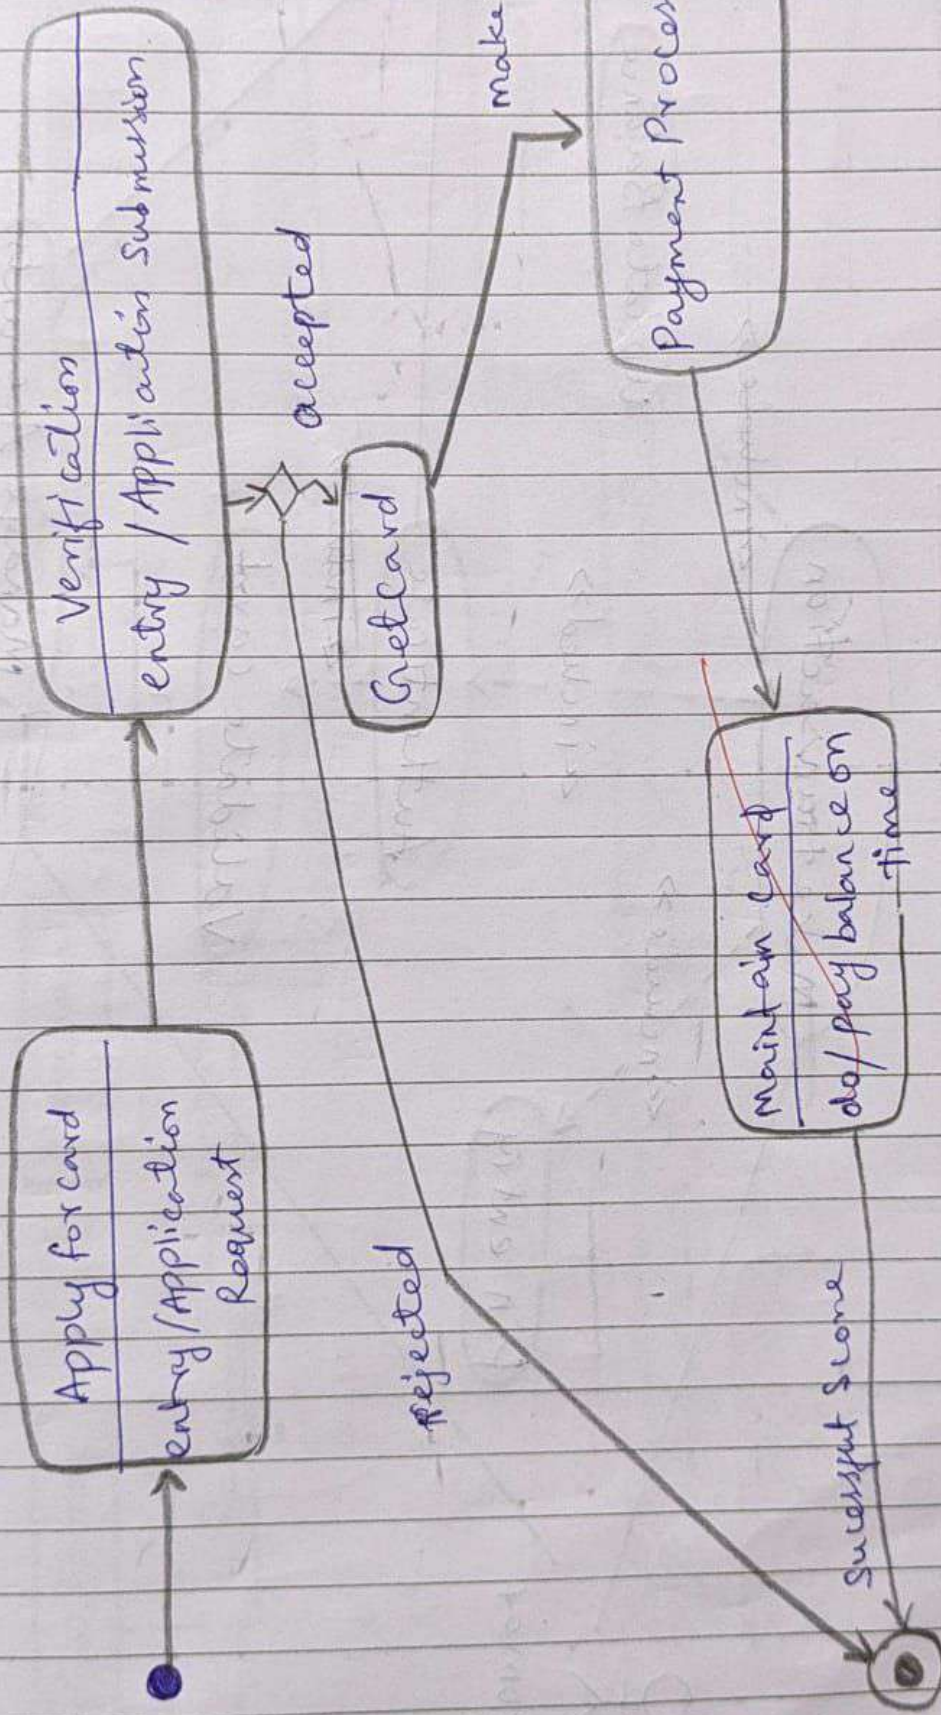 Apply for card
entry/Application
Request
Verification
entry /Application Submission
accepted
rejected
Get Card
make
Payment Proces
Maintain card
do/pay balance on
time